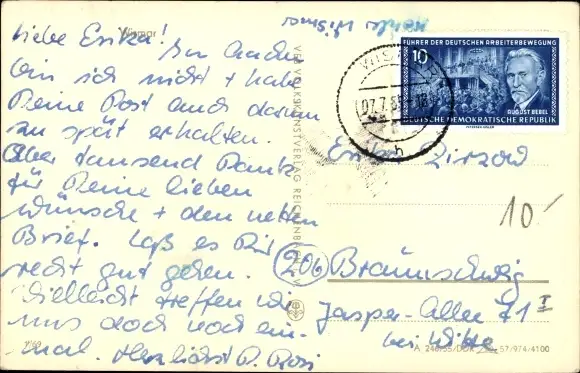 Wismar
Liebe Erika! In Aachen
bin ich nicht + habe
Deine Post auch darum
zu spät erhalten.
Aber tausend Dank
für Deine lieben
Wünsche + den netten
Brief. Laß es Dir
recht gut gehen.
Vielleicht treffen wir
uns doch noch ein-
mal. Herzlichst D. Rosi
VEB VOLKSKUNSTVERLAG REICHENBACH
FÜHRER DER DEUTSCHEN ARBEITERBEWEGUNG
10
AUGUST BEBEL
DEUTSCHE DEMOKRATISCHE REPUBLIK
07.7.5
h
Erika
10.-
(20b) Braunschweig
Jasper-Allee 71 I
bei Witte
A 246/55/DDR 57/974/4100